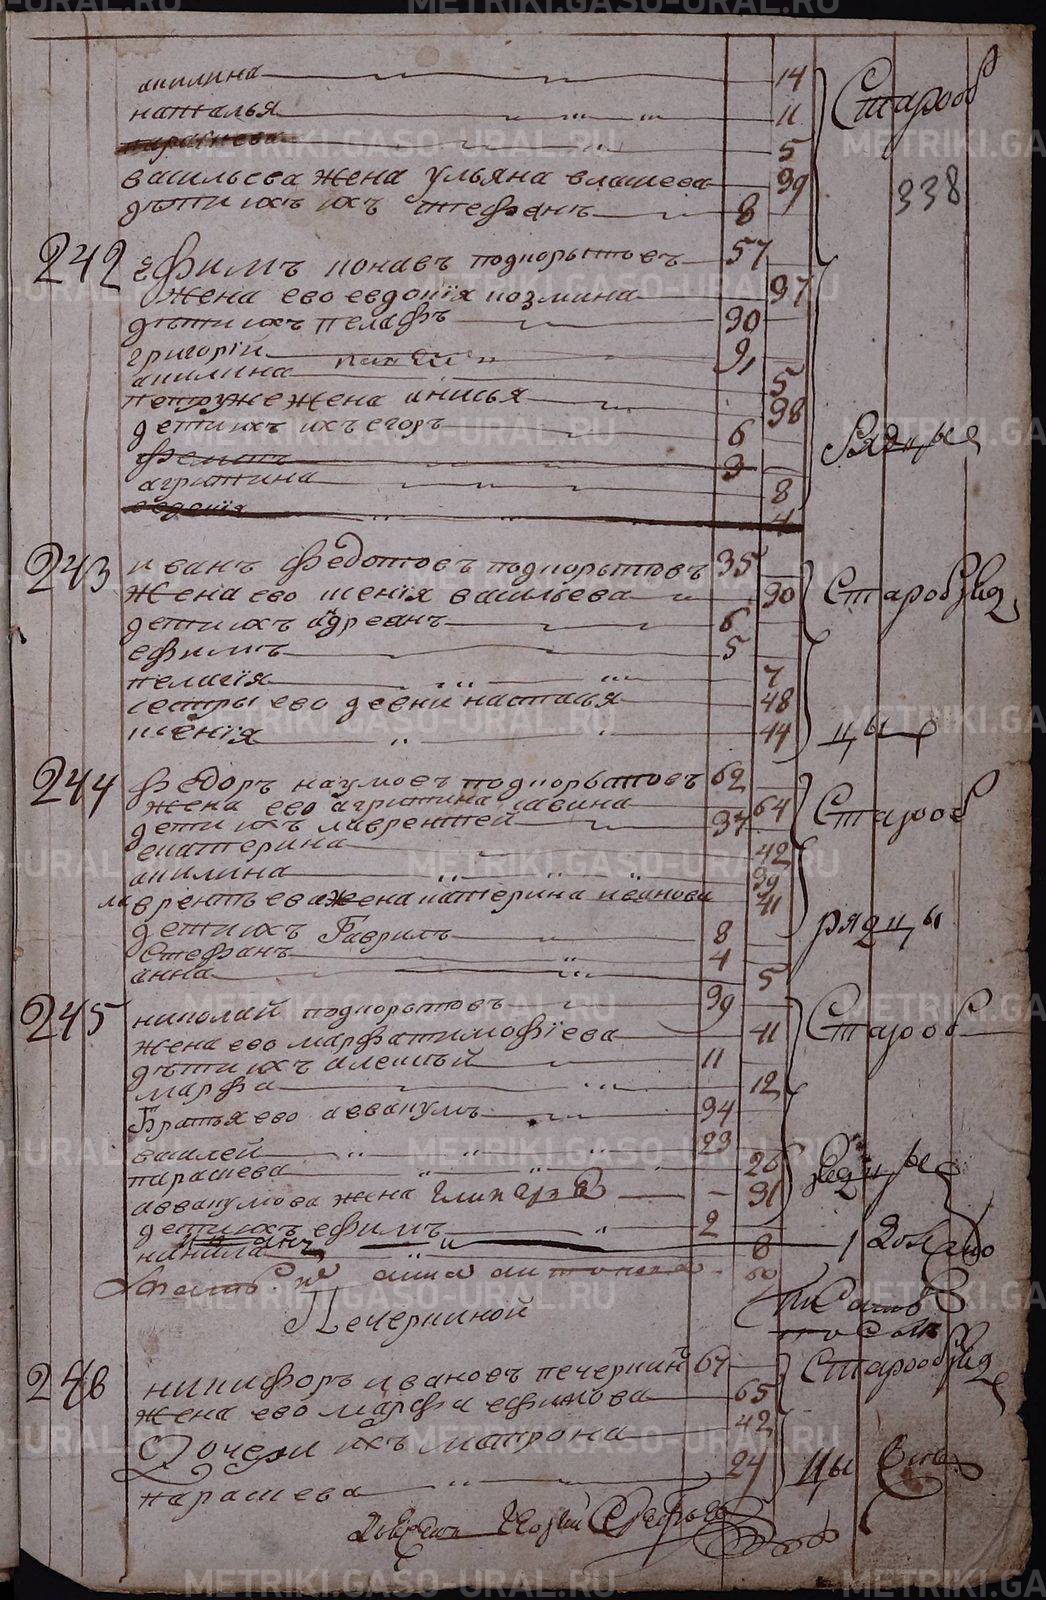 METRIKI.GASO-URAL.RU
акилина 14
наталья 11
парасћева 5
васильева жена ульяна власьева 39
дѣти ихъ стефанъ 8
Старооб
338
242 ефимъ подкорытовъ 57
жена ево евдокія козмина 37
дѣти ихъ 30
григорій
акилина 5
жена анисья 38
дети ихъ егоръ 6
9
агрипина 8
евдокія 4
рядцы
243 иванъ федотовъ подкорытовъ 35
жена ево ксенія васильева 30
дети ихъ адреанъ 6
ефимъ 5
пелагія 7
сестры ево девки настасья 48
ксенія 44
Старообряд
цы
244 федоръ наумовъ подкорытовъ 62
жена ево агрипина савина 64
дети ихъ лаврентей 37
екатерина 42
акилина 39
лаврентьева жена катерина иванова 41
дети ихъ Гаврилъ 8
Стефанъ 4
анна 5
Старооб
рядцы
245 николай подкорытовъ 39
жена ево марфа тимофіева 41
дѣти ихъ алексѣй 11
марфа 12
Братья ево аввакумъ 34
василей 23
парасћева 26
аввакумова жена 31
дети ихъ ефимъ 2
8
60
Старооб
рядцы
Печеркиной
246 никифоръ ивановъ печеркинъ 67
жена ево марфа ефимова 65
Дочери ихъ матрона 42
парасћева 24
Старообряд
цы